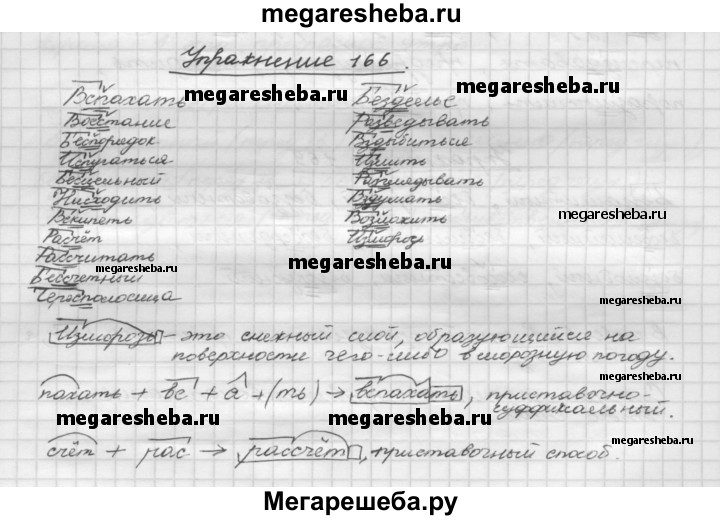 megaresheba.ru
Упражнение 166.
Вспахать
Восстание
Беспорядок
Испугаться
Бесцельный
Нисходить
Вскипеть
Расчёт
Рассчитать
Бессчетный
Чересполосица
Безделье
Разведывать
Вздыбиться
Излить
Разглядывать
Вздумать
Возложить
Изморозь
megaresheba.ru
megaresheba.ru
megaresheba.ru
megaresheba.ru
megaresheba.ru
megaresheba.ru
Изморозь - это снежный слой, образующийся на
поверхности чего-либо в морозную погоду.
пахать + вс + а + (ть) → вспахать, приставочно-
суффиксальный.
megaresheba.ru
megaresheba.ru
megaresheba.ru
счёт + рас → рассчёт, приставочный способ.
Мегарешеба.ру